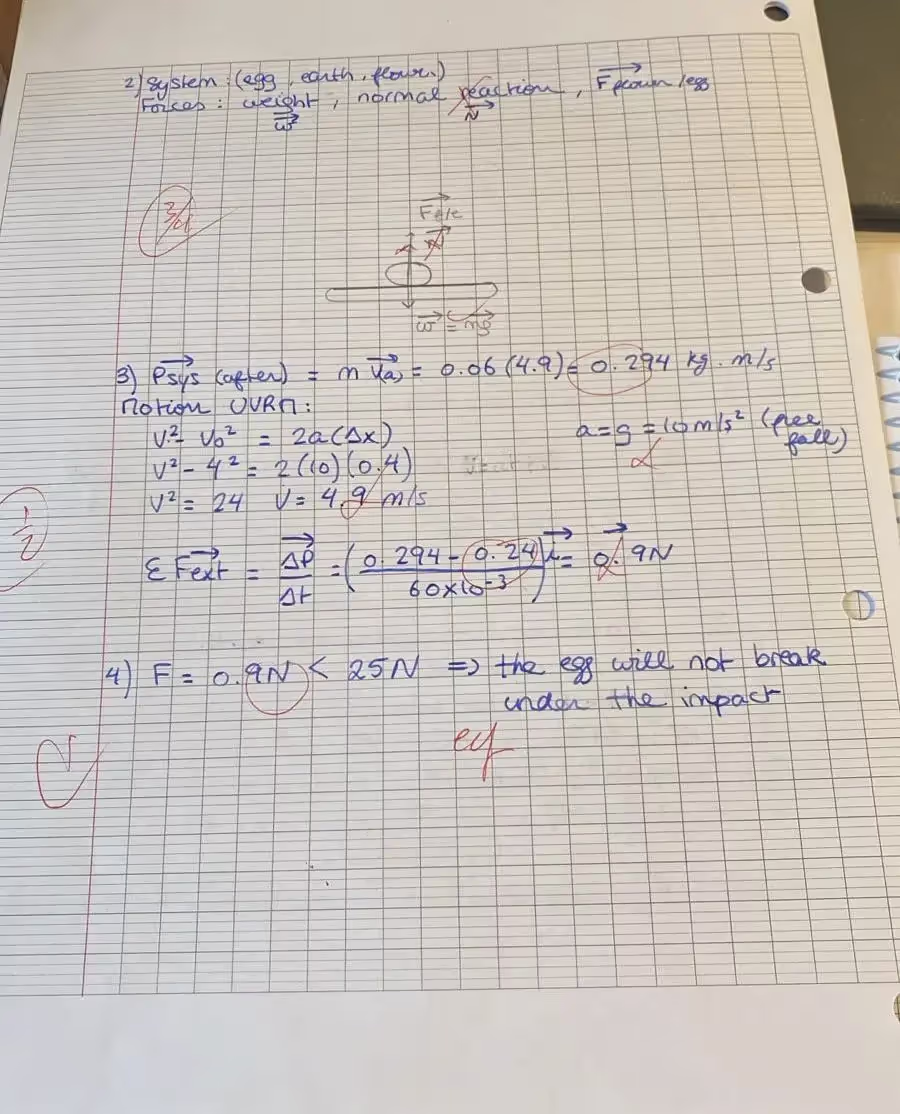 2) System : (egg, earth, flour.)
Forces : weight, normal reaction, F flour/egg
w N
3/4
F f/e
N
w = mg
3) Psys (after) = m V(a) = 0.06 (4.9) = 0.294 kg. m/s
Motion UVRM:
V² - V₀² = 2a(Δx)
a = g = 10 m/s² (free fall)
V² - 4² = 2(10)(0.4)
V² = 24 V = 4.9 m/s
1/2
Σ Fext = ΔP/Δt = (0.294 - 0.24 / 60x10⁻³) i = 0.9N
4) F = 0.9N < 25N => the egg will not break
under the impact